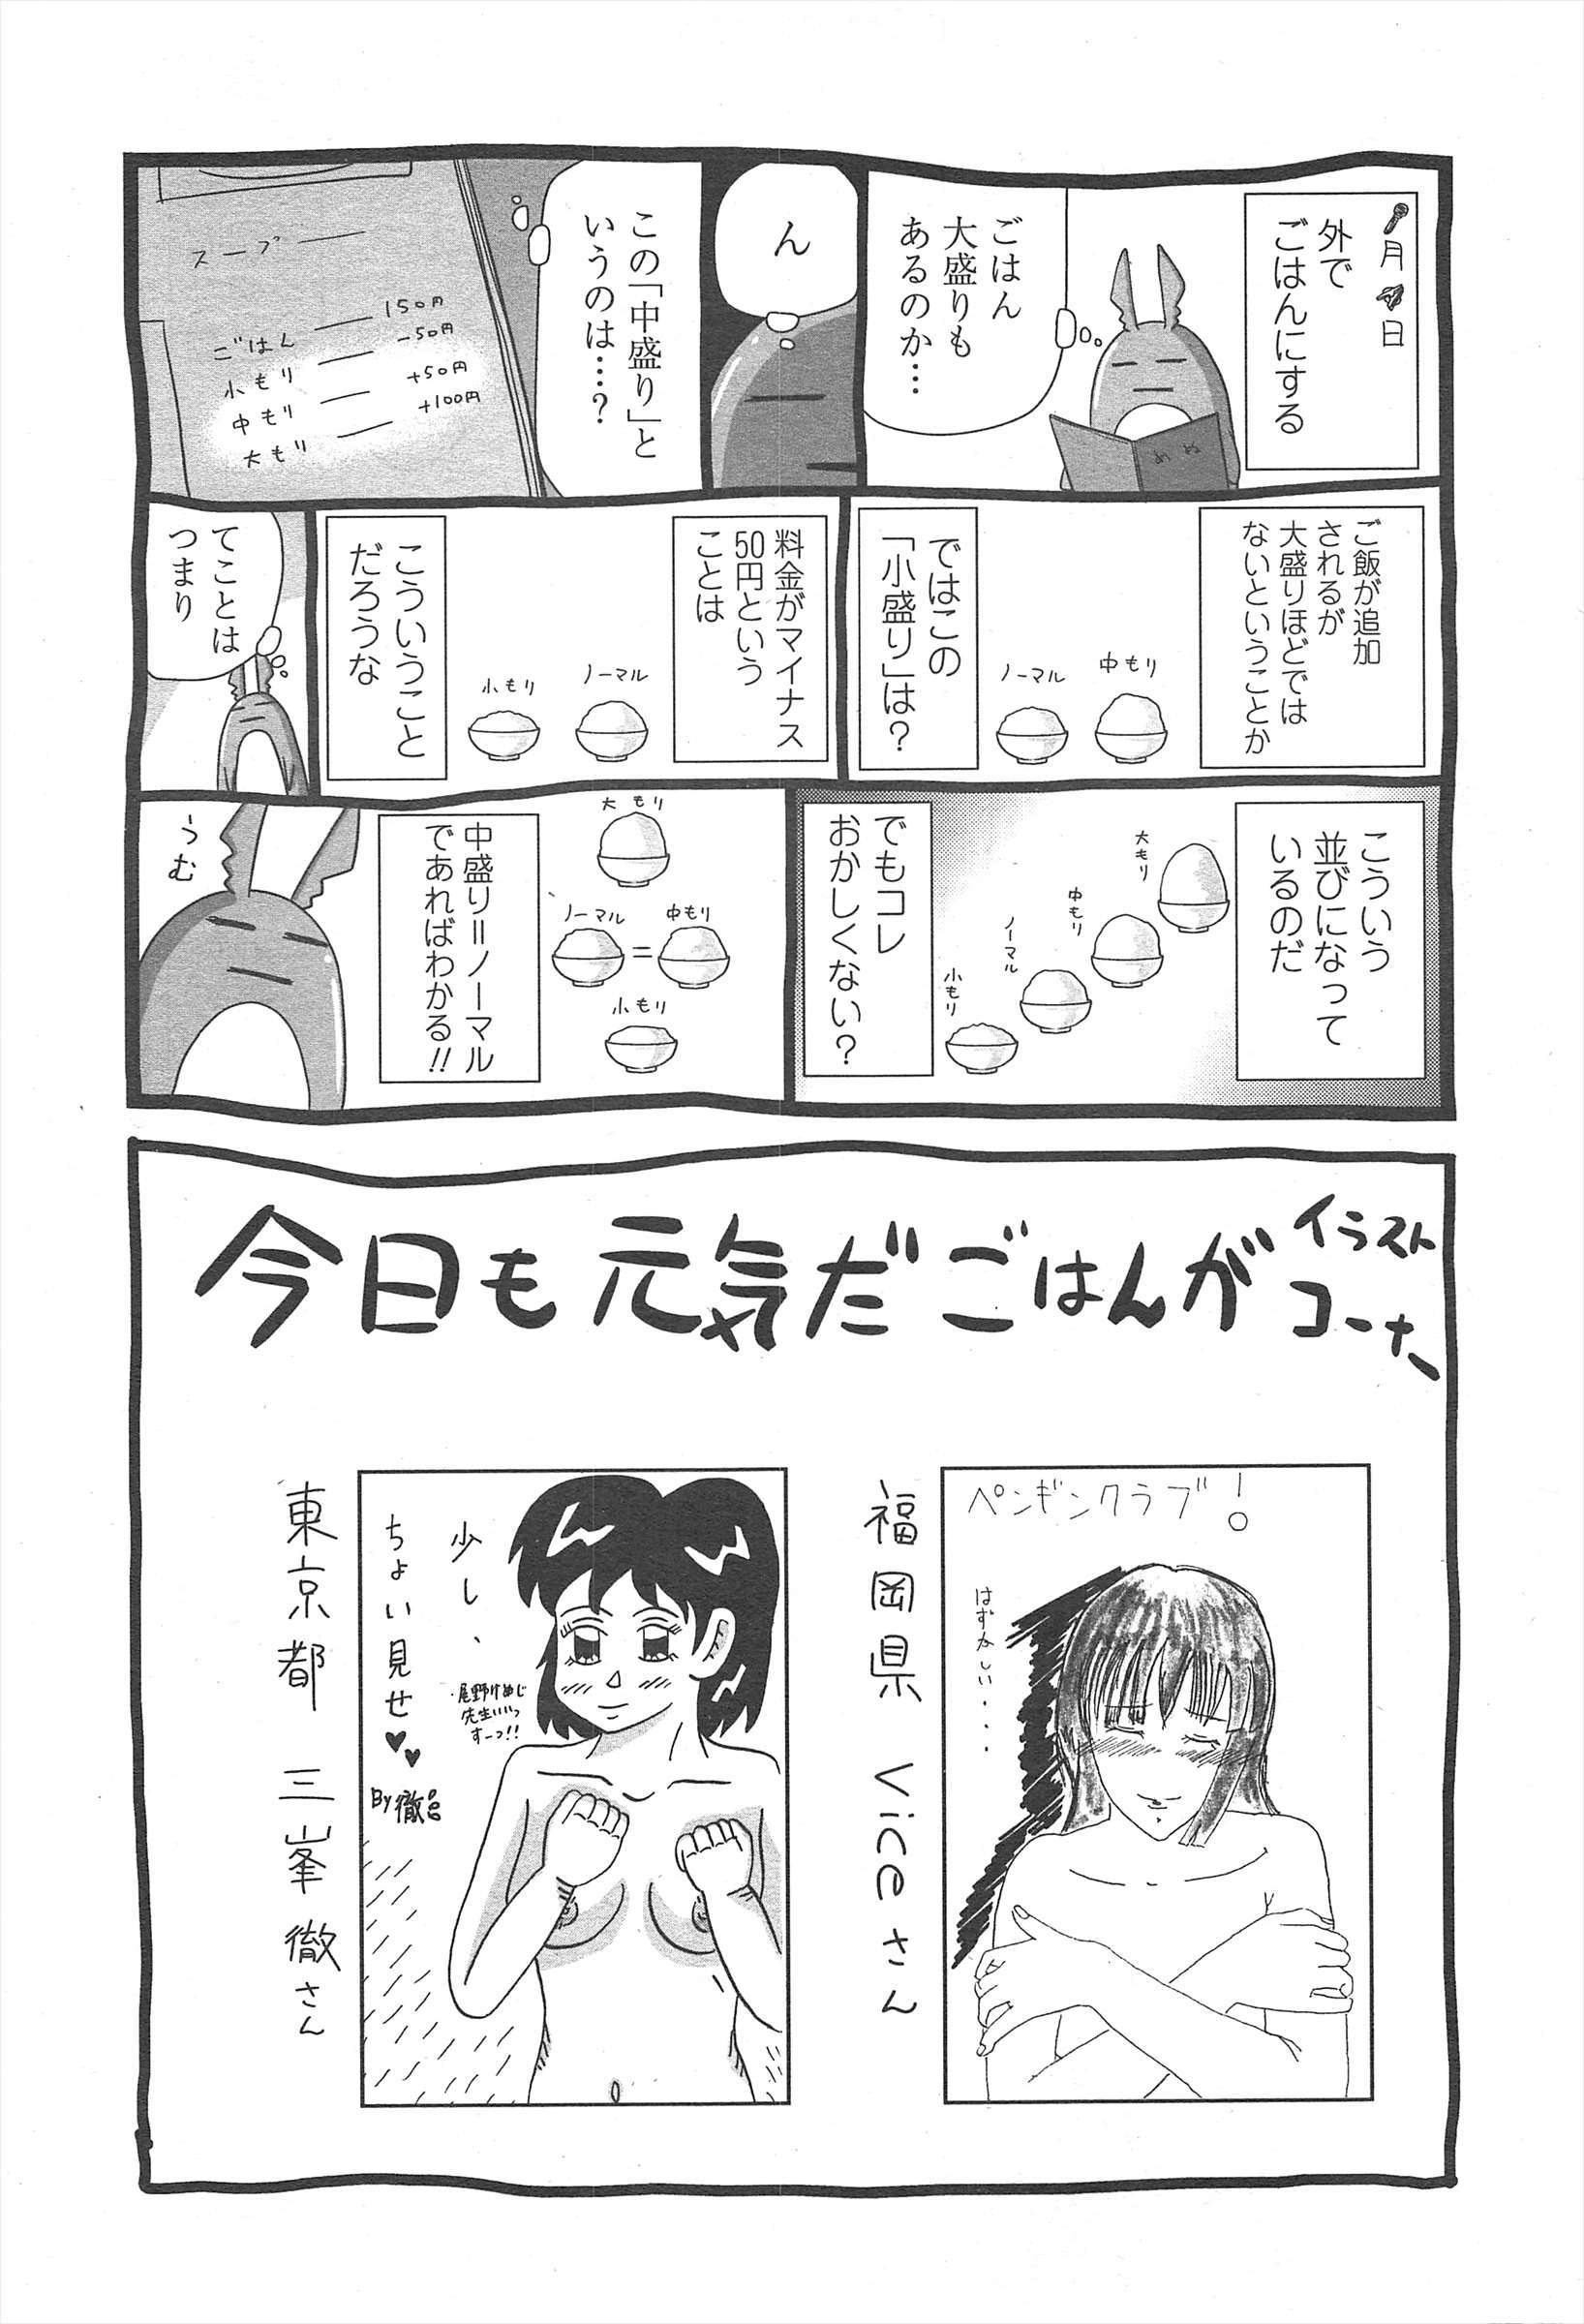 月日
外で
ごはんにする
ごはん
大盛りも
あるのか…
めぬ
ん
この「中盛り」と
いうのは…?
スープ
ごはん 150円
小もり -50円
中もり +50円
大もり +100円
ご飯が追加
されるが
大盛りほどでは
ないということか
中もり
ノーマル
ではこの
「小盛り」は?
料金がマイナス
50円という
ことは
ノーマル
小もり
こういうこと
だろうな
てことは
つまり
こういう
並びになって
いるのだ
大もり
中もり
ノーマル
小もり
でもコレ
おかしくない?
大もり
ノーマル = 中もり
小もり
中盛り=ノーマル
であればわかる!!
うむ
今日も元気だごはんが
イラスト
コーナー
ペンギンクラブ!
はずかしい・・・
福岡県 Viceさん
少し、
ちょい見せ♥♥
尾野けぬじ
先生いいっ
すーっ!!
By徹
東京都 三峯徹さん